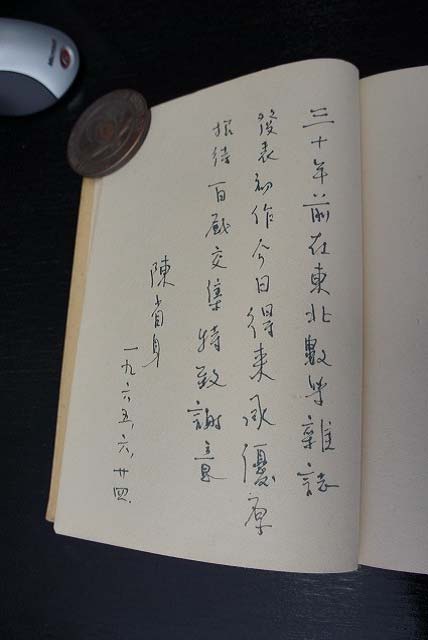 三十年前在東北數学雜誌
發表初作今日得來承優厚
招待百感交集特致謝意
陳省身
一九六五、六、廿四.